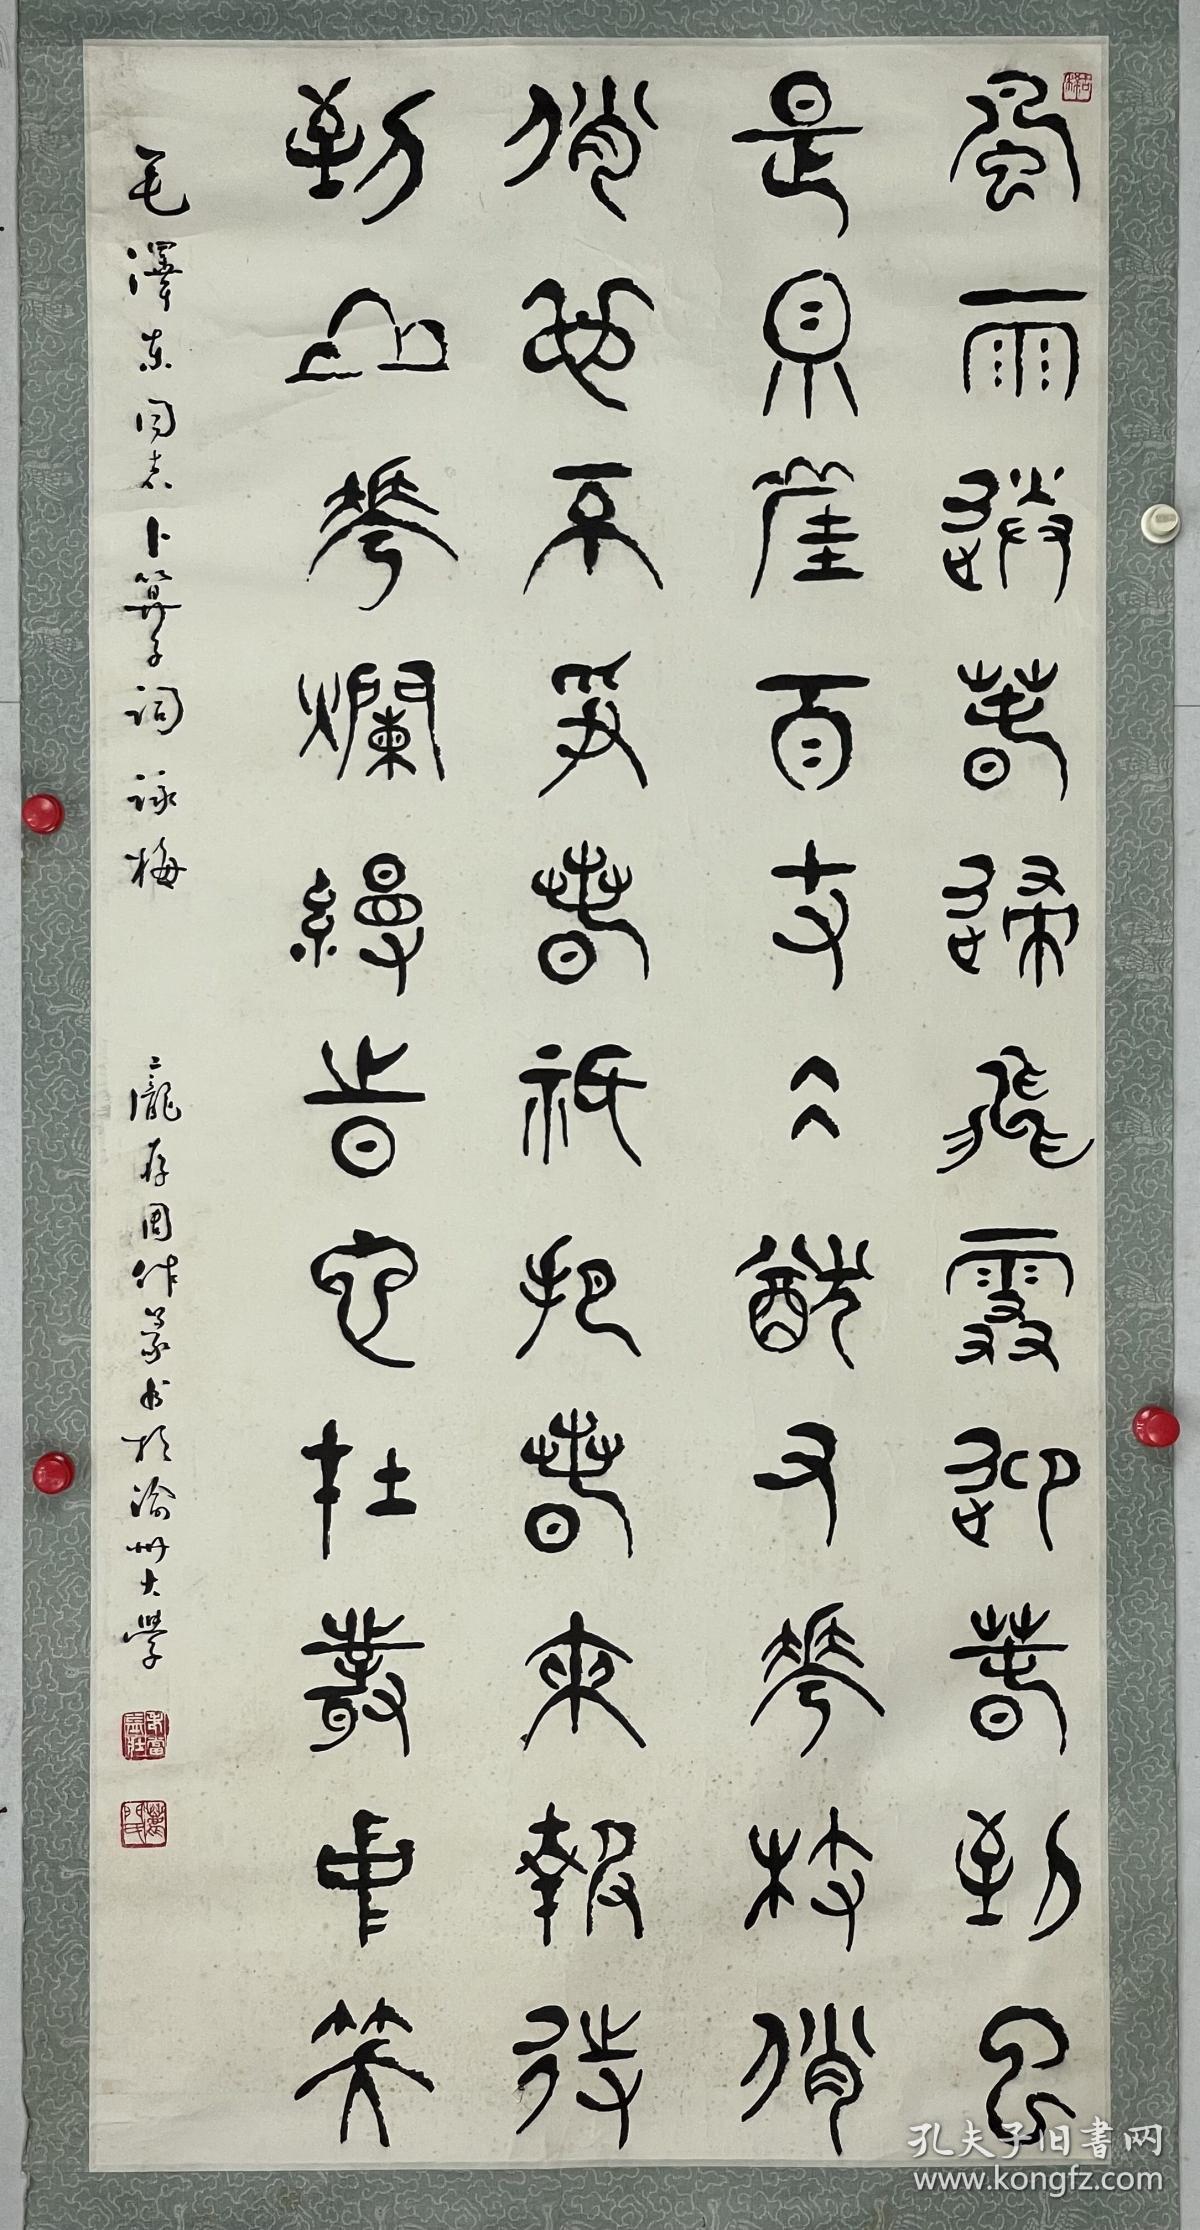 風雨送春歸飛雪迎春到已
是県崖百丈仌猷又華枝俏
俏也不爭春祇把春來報待
到山華爛縵旹它在叢中笑
毛澤東同志卜算子詞 詠梅 龐存周作篆書於渝州大學
孔夫子旧書网
www.kongfz.com